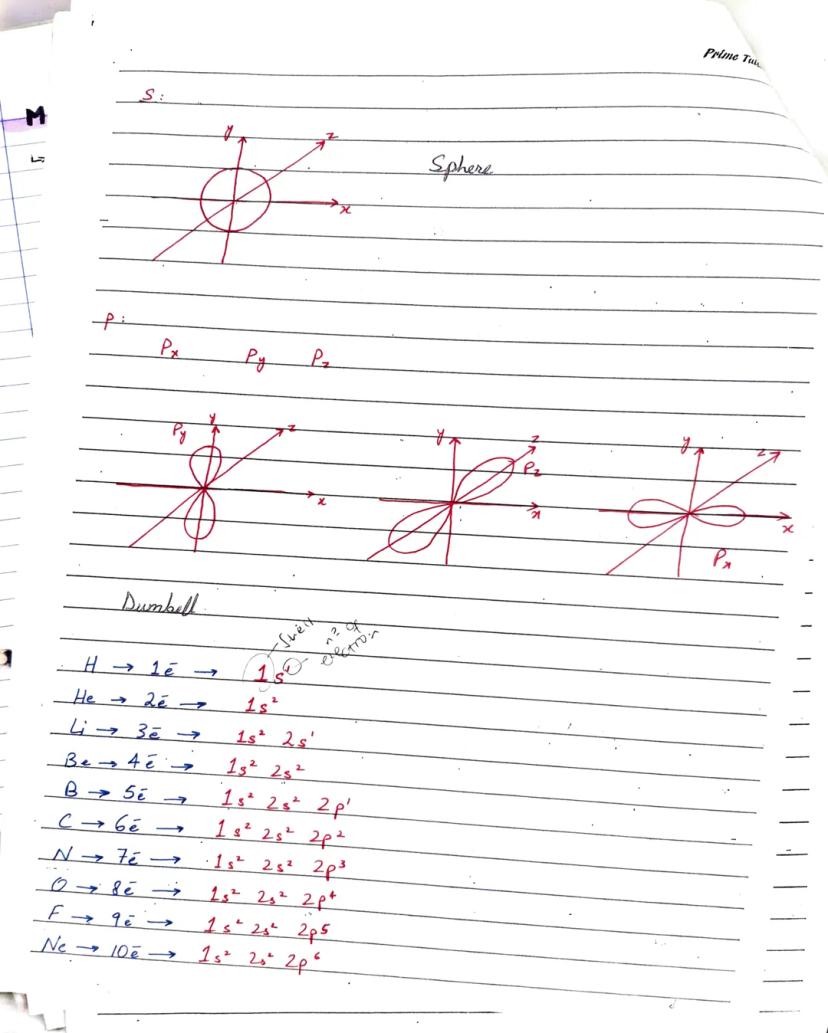 Prime
M
S:
y z x
Sphere
P:
Px Py Pz
Py y z x
y z Pz x
y z x Px
Dumbell
shell
nº of
electron
H → 1ē → 1s¹
He → 2ē → 1s²
Li → 3ē → 1s² 2s¹
Be → 4ē → 1s² 2s²
B → 5ē → 1s² 2s² 2p¹
C → 6ē → 1s² 2s² 2p²
N → 7ē → 1s² 2s² 2p³
O → 8ē → 1s² 2s² 2p⁴
F → 9ē → 1s² 2s² 2p⁵
Ne → 10ē → 1s² 2s² 2p⁶